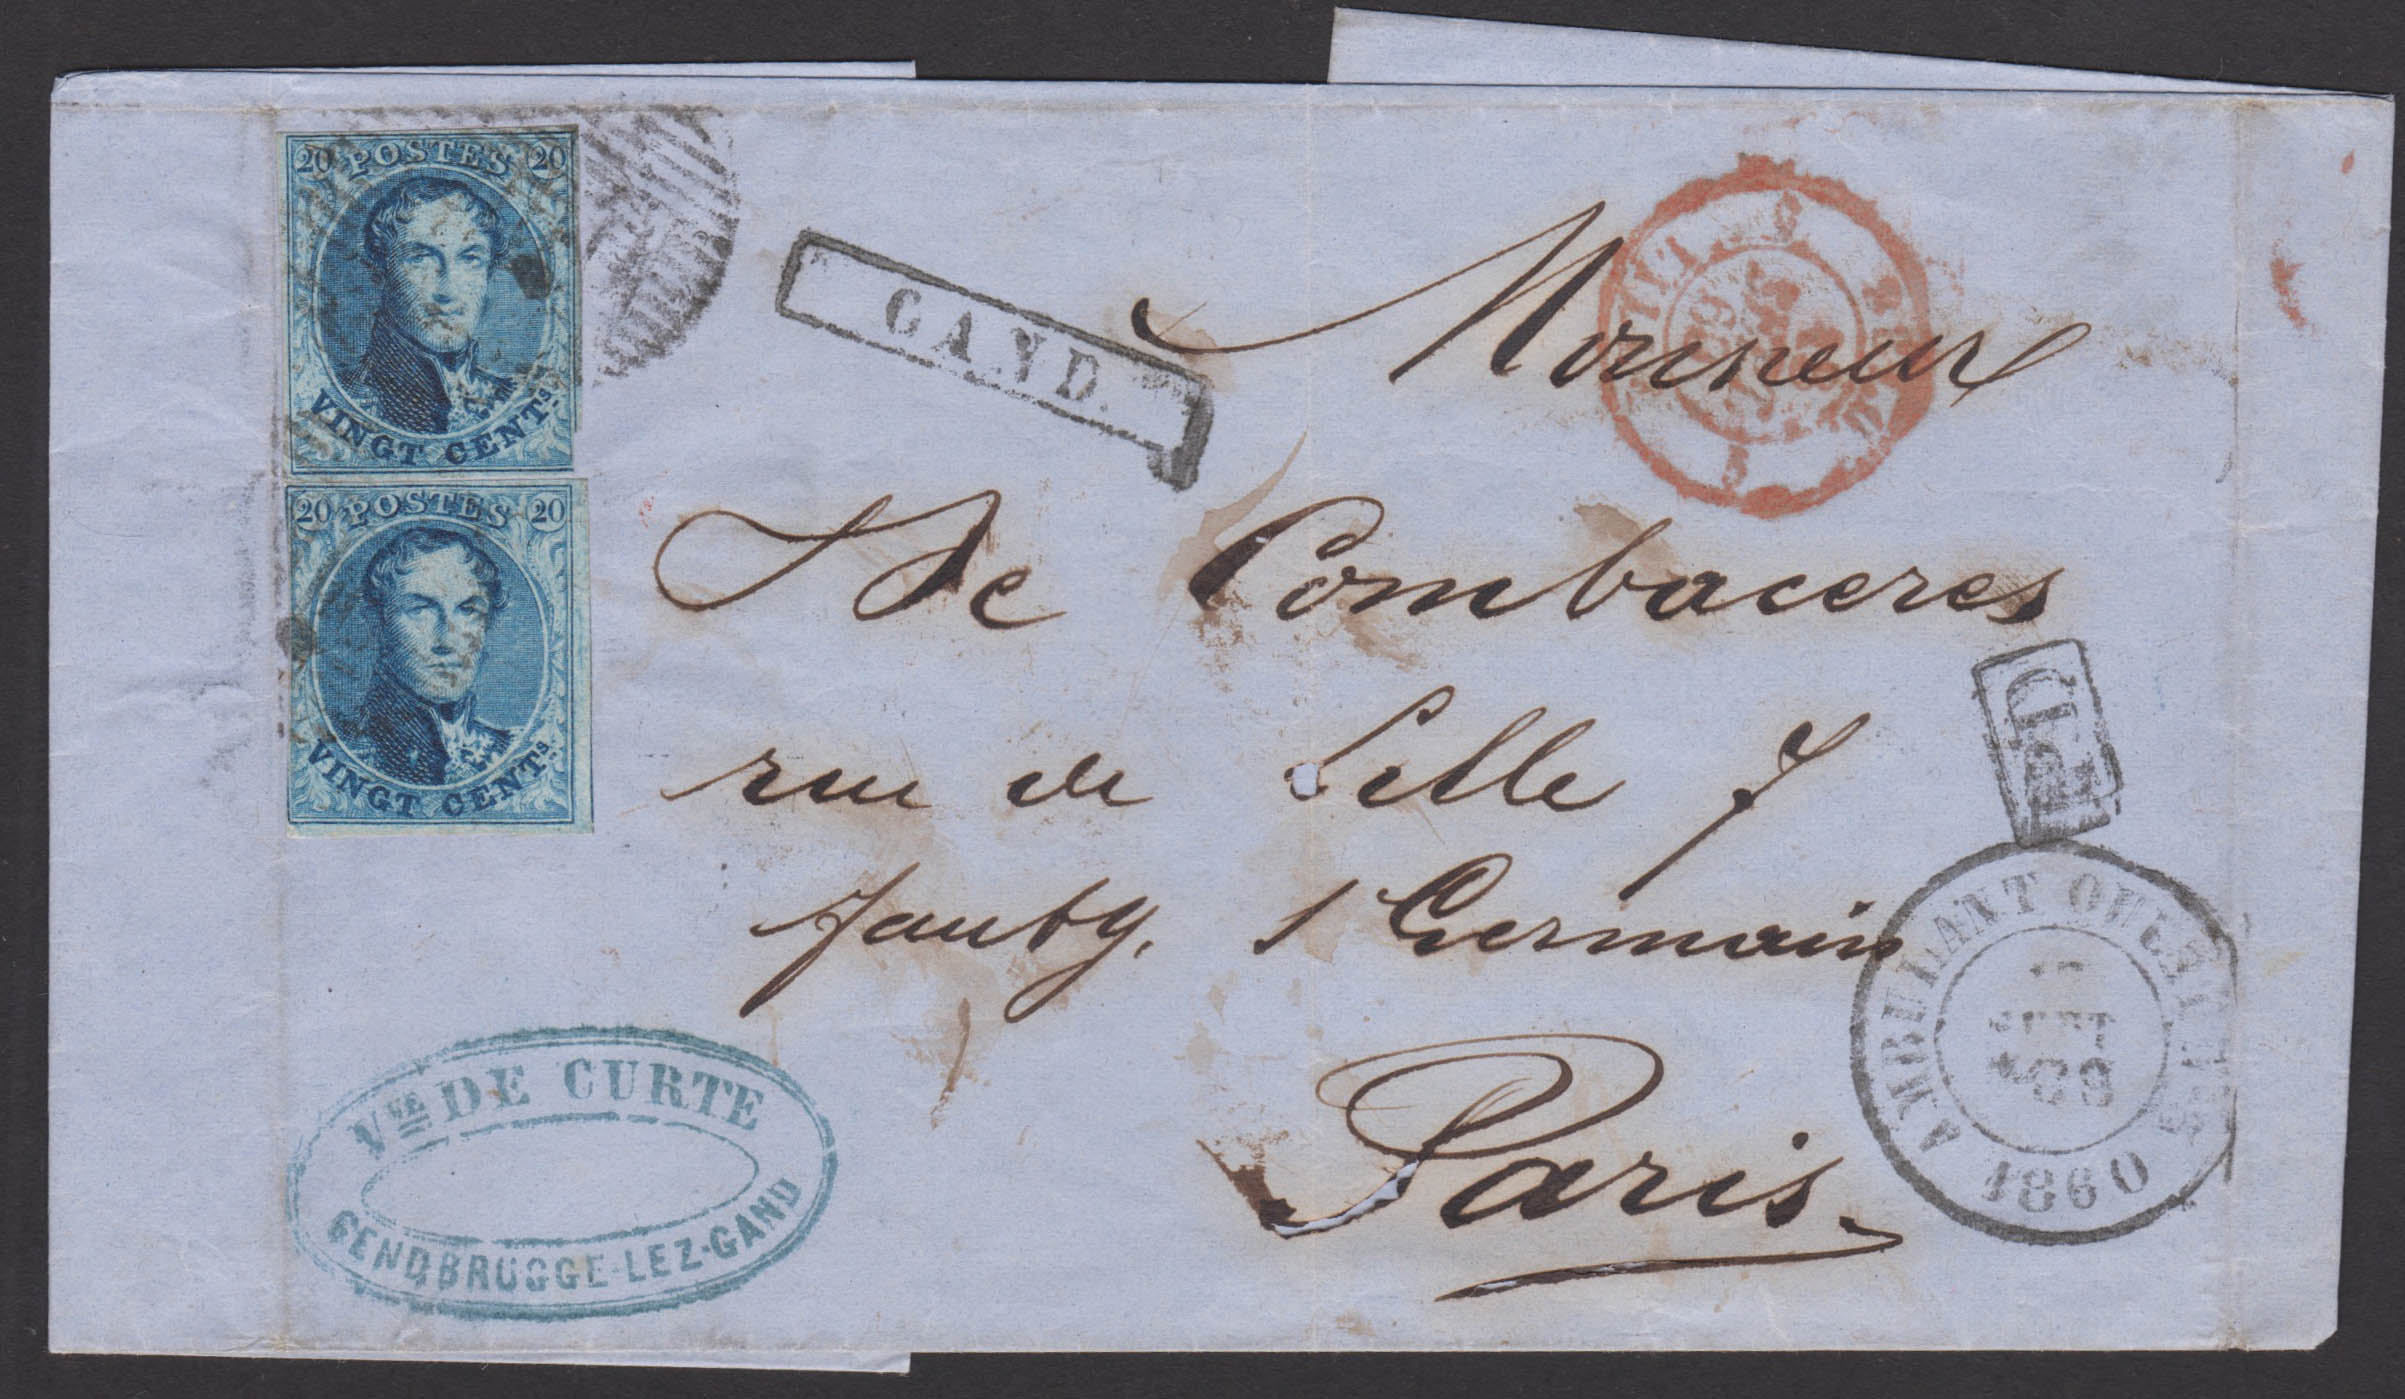 20 POSTES 20
VINGT CENTS.
20 POSTES 20
VINGT CENTS.
GAND.
Monsieur
De Combaceres
rue de Lille 7
faubg. St Germain
Paris.
PD
AMBULANT OUEST
1860
VVE DE CURTE
GENDBRUGGE-LEZ-GAND